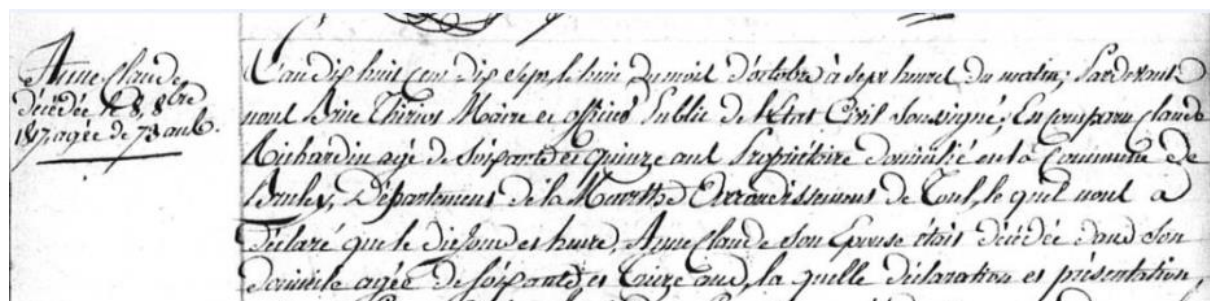 Anne Claude
décédée le 8, 8bre
1817, agée de 73 ans.
L'an dix huit cent dix sept, le huit du mois d'octobre à sept heures du matin; Pardevant
nous Thirion Maire et officier Public de l'Etat Civil soussigné, En comparu Claude
Richardin agé de soixante et quinze ans Propriétaire domicilié en la Commune de
Bruley, Département de la Meurthe Arrondissement de Toul, le quel nous a
Déclaré que le dit Jour et heure, Anne Claude son Epouse était décédée dans son
domicile agée de soixante, et treize ans, la quelle déclaration et présentation,